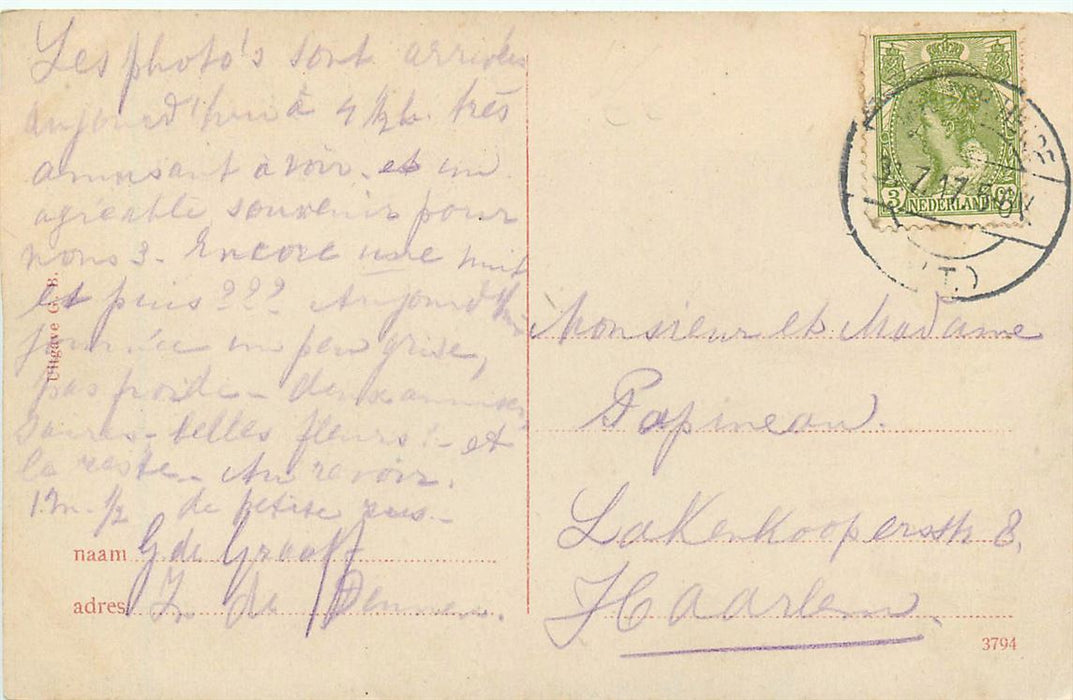 Les photo's sont arrivées
aujourd'hui à 4 ½ h. très
amusant à voir. et un
agréable souvenir pour
nous 3. Encore une nuit
et puis ??? Aujourd'hui
journée un peu grise,
pas froide - deux anniver
saires - belles fleurs! - et
le reste - Au revoir.
de petite
naam G de Graaff
adres In de Dennen.
Uitgave G. B.
3 Ct
NEDERLAND
7.17.
(T.)
Monsieur et Madame
Papineau.
Lakenkoopersstr 8.
Haarlem.
3794